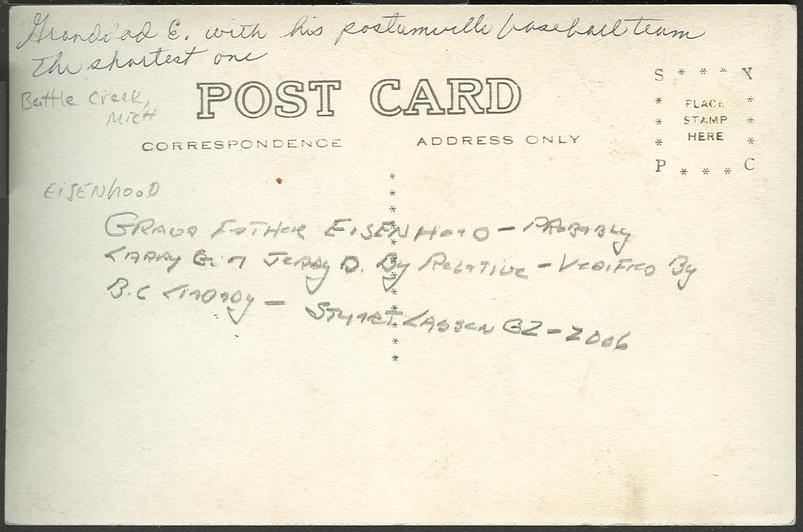 Grandad E. with his postumville baseball team
the shortest one
Battle Creek,
Mich
POST CARD
CORRESPONDENCE
ADDRESS ONLY
S * * * * X
PLACE
STAMP
HERE
P * * * * C
EISENHOOD
GRAND FATHER EISENHOOD - PROBABLY
LARRY G. JERRY D. BY RELATIVE - VERIFIED BY
B.C LIBRARY - LARSEN - 2006